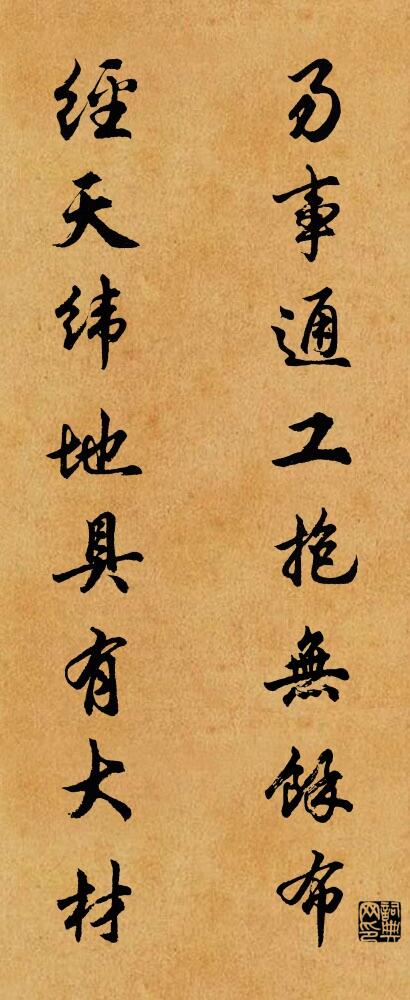 易事通工抱無餘布
經天緯地具有大材
詞典网印